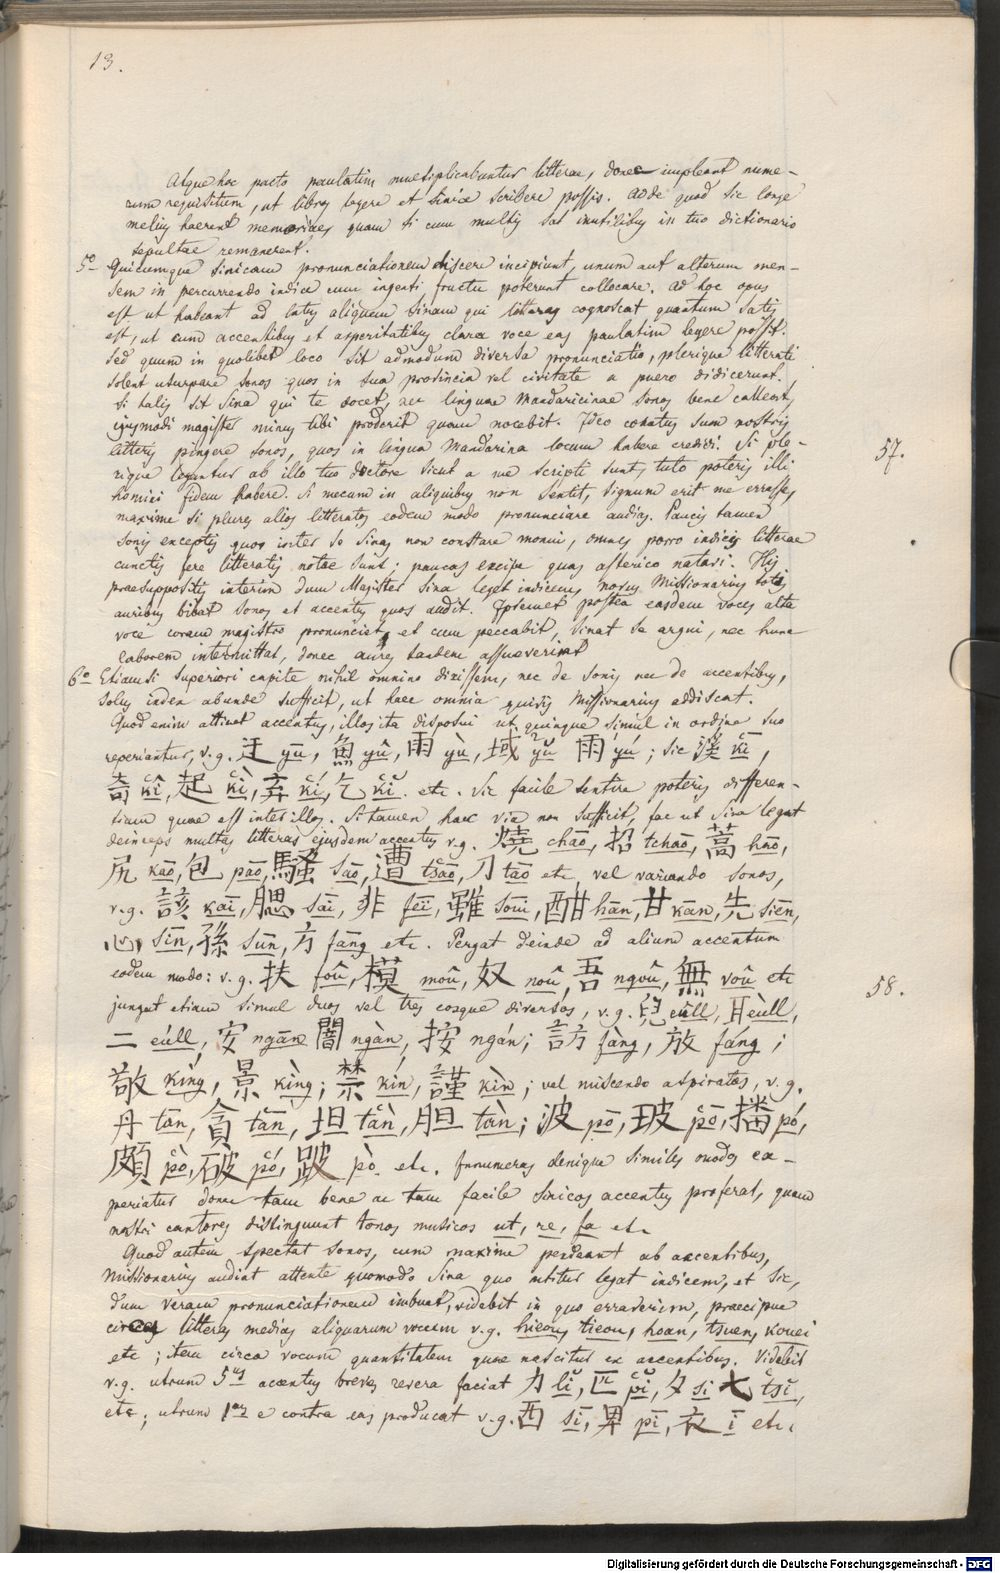 13.
Atque hoc pacto paulatim multiplicabuntur litterae, donec impleant nume-
rum requisitum, ut libros legere et sinice scribere possis. Adde quod sic longe
melius haerent memoriae, quam si cum multis sat inutilibus in tuo dictionario
sepultae remanerent.
5º Quicumque sinicam pronunciationem discere incipiunt, unum aut alterum men-
sem in percurrendo indice cum ingenti fructu poterunt collocare. Ad hoc opus
est ut habeant ad latus aliquem sinam qui litteras cognoscat quantum satis
est, ut cum accentibus et asperitatibus clara voce eas paulatim legere possit.
Sed quum in quolibet loco sit admodum diversa pronunciatio, plerique litterati
solent usurpare sonos quos in sua provincia vel civitate a puero didicerunt.
Si talis sit Sina qui te docet, nec linguae Mandaricinae sonos bene calleat,
ejusmodi magister minus tibi proderit quam nocebit. Ideo conatus sum nostris
litteris pingere sonos, quos in lingua Mandarina locum habere credidi. Si ple-
57.
rique leguntur ab illo tuo doctore sicut a me scripti sunt, tuto poteris illi
homini fidem habere. Si mecum in aliquibus non sentit, signum erit me errasse,
maxime si plures alios litteratos eodem modo pronunciare audias. Paucis tamen
sonis exceptis quos inter se Sinas non constare monui, omnes porro indicis litterae
cunctis fere litteratis notae sunt; paucas excipe quas asterico notavi. His
praesuppositis interim dum Magister Sina leget indicem, novus Missionarius totis
auribus bibat sonos et accentus quos audit. Ipsemet postea easdem voces alta
voce coram magistro pronunciet, et cum peccabit, sinat se argui, nec hunc
laborem intermittat, donec aures tandem assueverint
6º Etiamsi superiori capite nihil omnino dixissem, nec de sonis nec de accentibus,
solus index abunde sufficit, ut haec omnia quivis Missionarius addiscat.
Quod enim attinet accentus, illos ita disposui ut quinque simul in ordine suo
reperiantur, v.g. 迂 yū, 魚 yû, 雨 yù, 域 yŭ 雨 yú; sic 溪 kī,
奇 kî, 起 kì, 弃 kí, 乞 kĭ. etc. Sic facile sentire poteris differen-
tiam quae est inter illos. Si tamen haec via non sufficit, fac ut Sina legat
deinceps multas litteras ejusdem accentus v.g. 燒 chāo, 招 tchāo, 蒿 hāo,
尻 kāo, 包 pāo, 騷 sāo, 遭 tsāo, 刀 tāo etc, vel variando sonos,
v.g. 該 kāi, 腮 sāi, 非 fēi, 雖 soūi, 酣 hān, 甘 kān, 先 siēn,
心 sīn, 孫 sūn, 方 fāng etc. Pergat deinde ad alium accentum
eodem modo: v.g. 扶 foû, 模 moû, 奴 noû, 吾 ngoû, 無 voû etc
58.
jungat etiam simul duos vel tres eosque diversos, v.g. 兒 eûll, 耳 eùll,
二 eúll, 安 ngān 闇 ngàn, 按 ngán; 訪 fàng, 放 fáng;
敬 kíng, 景 kìng; 禁 kín, 謹 kìn; vel miscendo aspiratos, v.g.
丹 tān, 貪 tān, 坦 tàn, 胆 tàn; 波 pō, 玻 pō, 播 pó,
頗 pò, 破 pó, 跛 pò. etc. Innumeros denique similes modos ex-
periatur donec tam bene ac tam facile sinicos accentus proferat, quam
nostri cantores distinguunt tonos musicos ut, re, fa etc
Quod autem spectat sonos, cum maxime pendeant ab accentibus,
Missionarius audiat attente quomodo Sina quo utitur legat indicem, et sic,
dum veram pronunciationem imbuet, videbit in quo erraverim, praecipue
circa litteras medias aliquarum vocum v.g. hieou, tieou, hoan, tsuen, kouei
etc; item circa vocum quantitatem quae nascitur ex accentibus. Videbit
v.g. utrum 5us accentus breves revera faciat 力 lĭ, 匹 pĭ, 夕 si 七 tsĭ,
etc; utrum 1us e contra eas producat v.g. 西 sī, 卑 pī, 衣 ī etc.
Digitalisierung gefördert durch die Deutsche Forschungsgemeinschaft - DFG